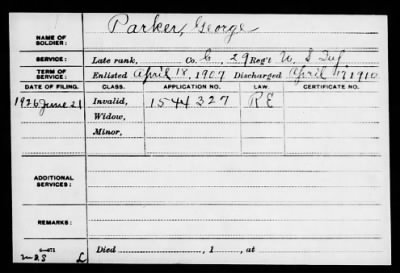 Parker, George
NAME OF SOLDIER:
SERVICE: Late rank, Co. C, 29 Reg't U. S Inf
TERM OF SERVICE: Enlisted April 18, 1907 Discharged April 17 1910
DATE OF FILING. CLASS. APPLICATION NO. LAW. CERTIFICATE NO.
1926 June 21 Invalid, 1544327 R E
Widow,
Minor,
ADDITIONAL SERVICES:
REMARKS:
6-671
Died , 1 , at